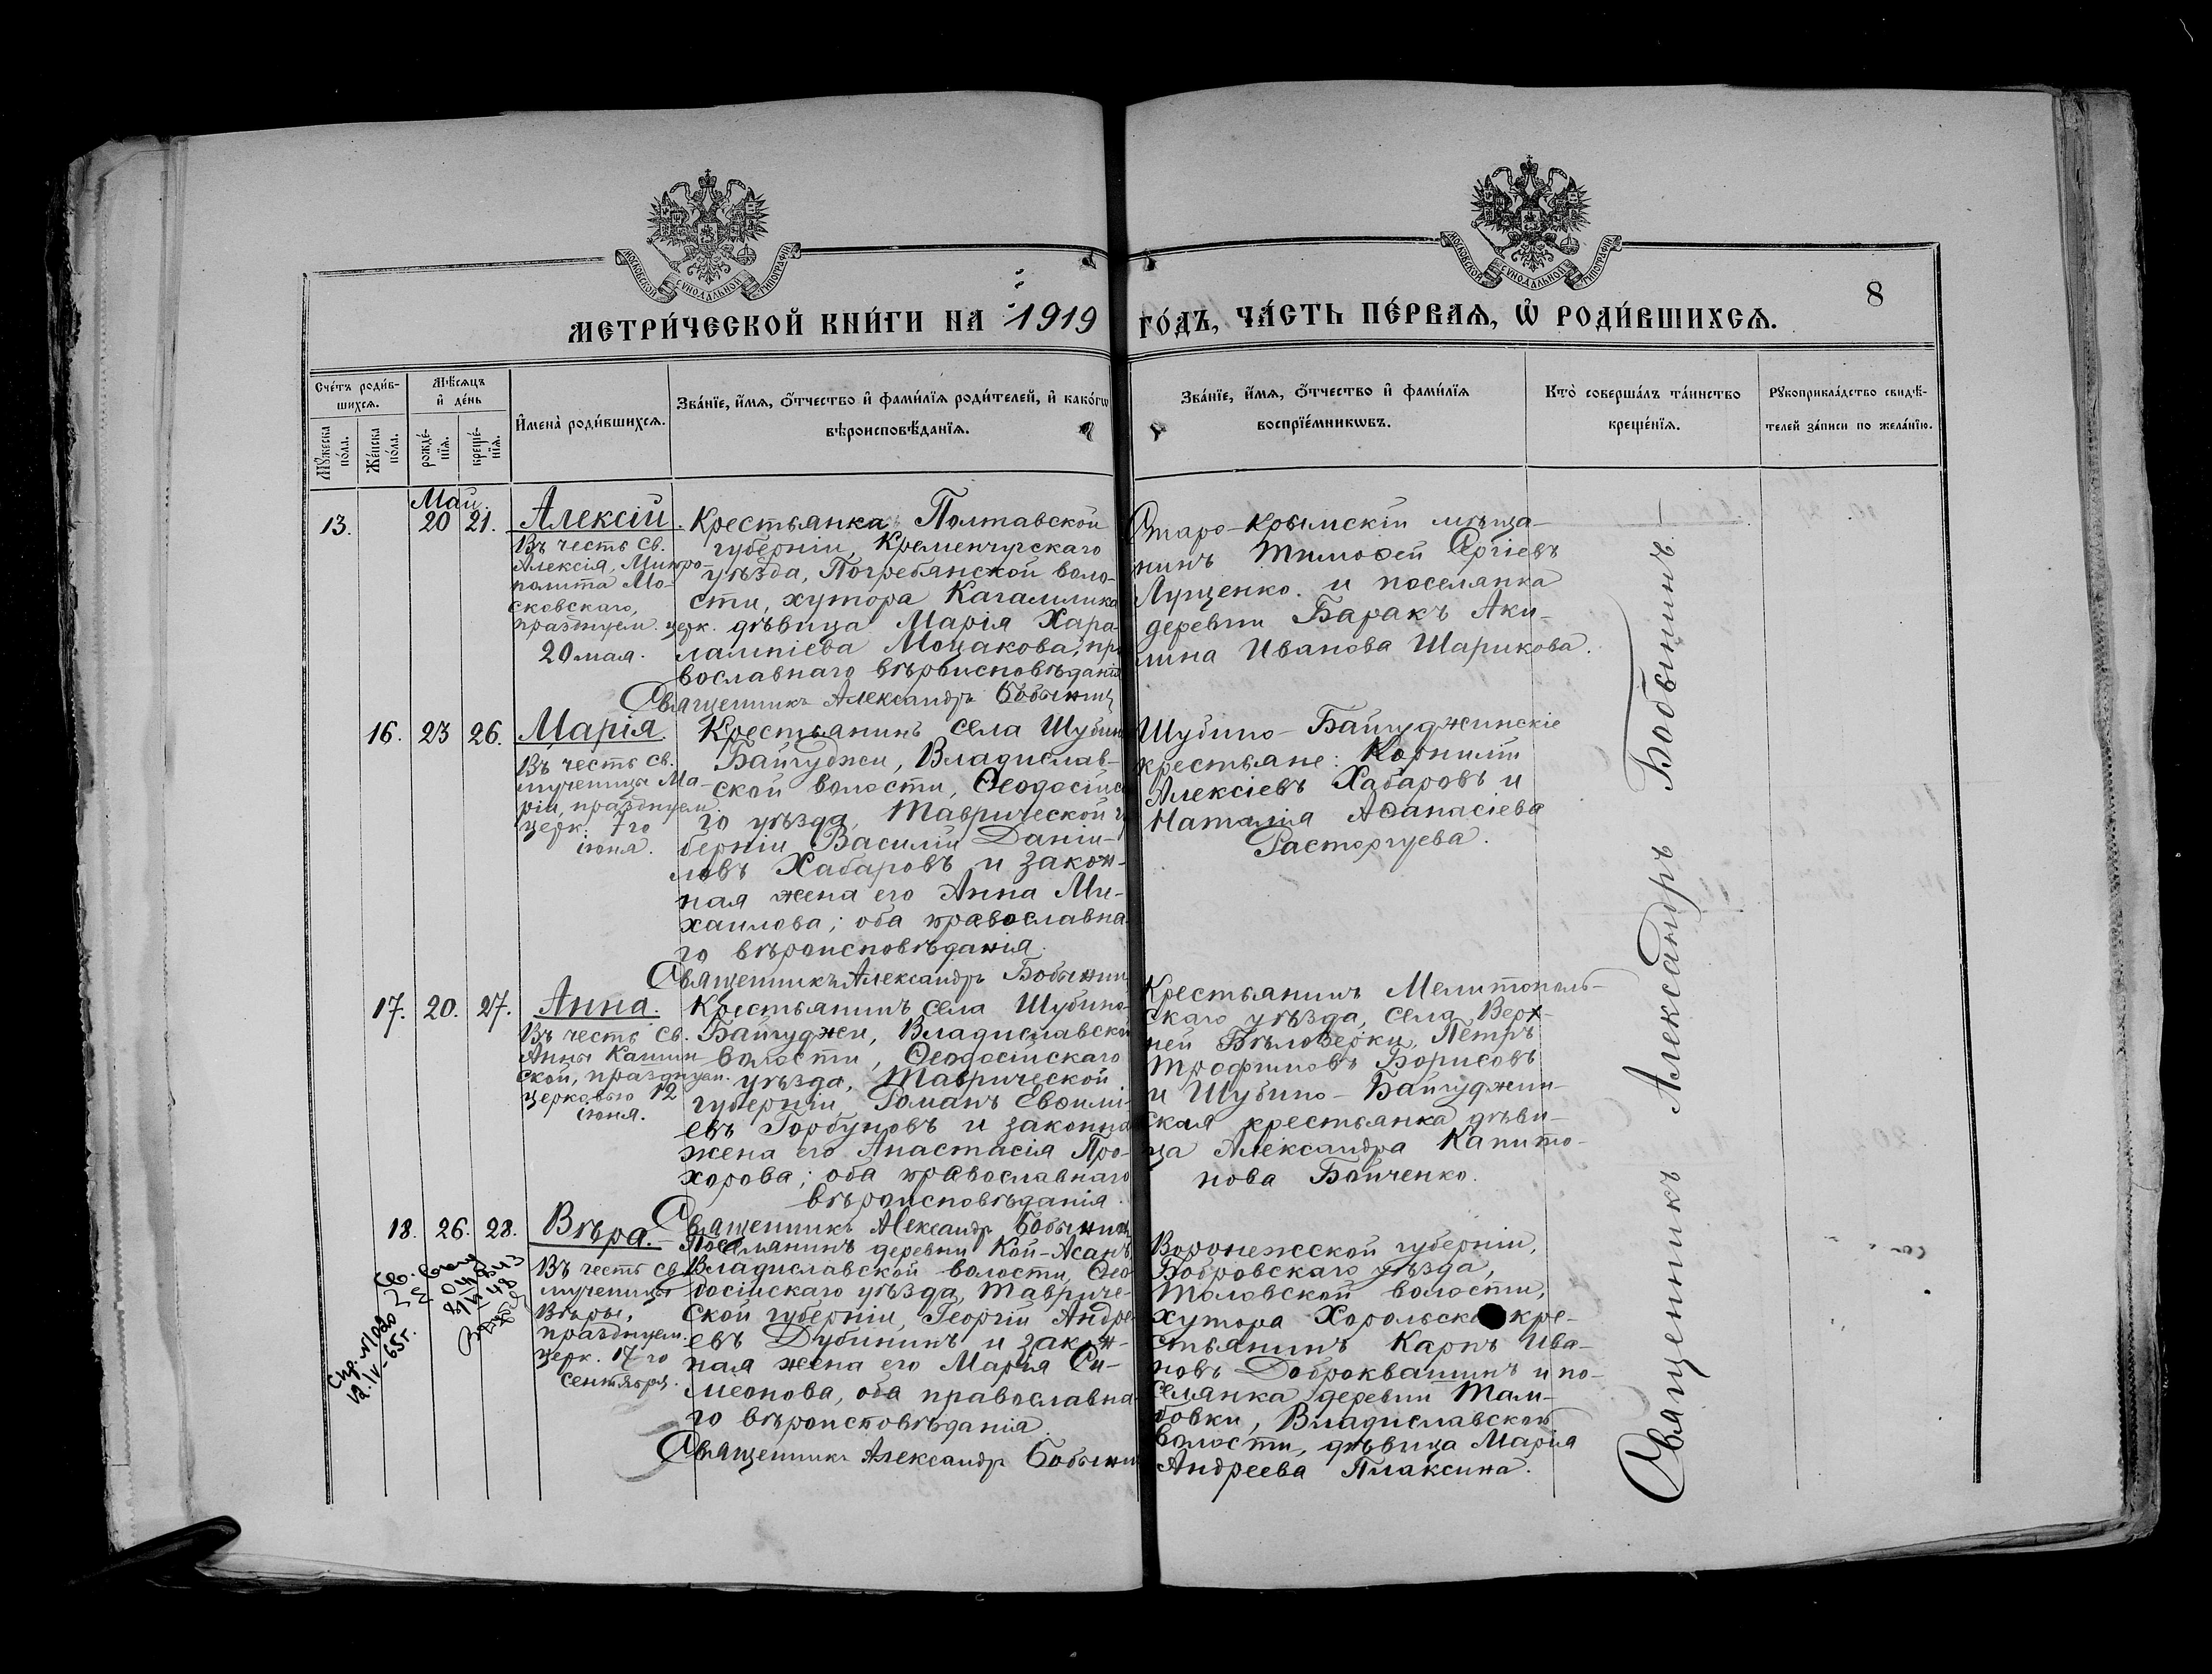 МОСКОВСКОЙ СѴНОДАЛЬНОЙ ТИПОГРАФІИ
МОСКОВСКОЙ СѴНОДАЛЬНОЙ ТИПОГРАФІИ
8
МЕТРИ́ЧЕСКОЙ КНИ́ГИ НА 1919 ГО́ДЪ, ЧА́СТЬ ПЕ́РВАѦ, Ѡ҆ РОДИ́ВШИХСѦ.
Сче́тъ роди́в-
шихсѧ.
Мѣ́сѧцъ
и҆ де́нь
И҆мена̀ роди́вшихсѧ.
Зва́нїе, и҆́мѧ, ѻ҆́тчество и҆ фами́лїѧ роди́телей, и҆ како́гѡ
вѣроисповѣ́данїѧ.
Зва́нїе, и҆́мѧ, ѻ҆́тчество и҆ фами́лїѧ
воспрїе́мникѡвъ.
Кто̀ соверша́лъ та́инство
креще́нїѧ.
Рꙋкоприкла́дство свидѣ́-
телей за́писи по жела́нїю.
Мꙋ́жеска
по́ла.
Же́нска
по́ла.
рожде́-
нїѧ.
креще́-
нїѧ.
Май.
13. 20 21. Алексій.
Въ честь св.
Алексія, Митро-
полита Мо-
сковскаго,
празднуем. церк.
20 мая.
Крестьянка Полтавской
губерніи, Кременчугскаго
уѣзда, Погребянской воло-
сти, хутора Кагамлика
дѣвица Марія Хара-
лампіева Моцакова, пра
вославнаго вѣроисповѣданія
Священникъ Александръ Бобынинъ
Старо-Крымскій мѣща-
нинъ Тимоѳей Сергіевъ
Луценко и поселянка
деревни Баракъ Аки-
лина Иванова Шарикова.
16. 23 26. Марія.
Въ честь св.
мученицы Ма-
ріи, празднуем.
церк. 7го
іюня.
Крестьянинъ села Шубин
Байгуджи, Владислав-
ской волости, Ѳеодосійс
го уѣзда, Таврической г
берніи Василій Даніи-
ловъ Хабаровъ и закон-
ная жена его Анна Ми-
хаилова; оба православна
го вѣроисповѣданія.
Священникъ Александръ Бобынин
Шубино-Байгуджинскіе
крестьяне: Корнилій
Алексіевъ Хабаровъ и
Наталія Аѳанасіева
Расторгуева.
17. 20. 27. Анна.
Въ честь св.
Анны Кашин-
ской, празднуем.
церковью 12
іюня.
Крестьянинъ села Шубино-
Байгуджи, Владиславской
волости, Ѳеодосійскаго
уѣзда, Таврической
губерніи Романъ Евѳимі-
евъ Горбуновъ и законна
жена его Анастасія Про-
хорова; оба православнаго
вѣроисповѣданія.
Священникъ Александръ Бобынинъ
Крестьянинъ Мелитополь-
скаго уѣзда, села Верх-
ней Бѣлозерки, Петръ
Трофимовъ Борисовъ
и Шубино-Байгуджин-
ская крестьянка дѣви-
ца Александра Капито-
нова Бойченко.
18. 26. 28. Вѣра.
Въ честь св.
мученицы
Вѣры,
празднуем.
церк. 17го
сентября.
Поселянинъ деревни Кой-Асанъ
Владиславской волости, Ѳео
досійскаго уѣзда, Тавриче-
ской губерніи, Георгій Андре
евъ Дубининъ и закон-
ная жена его Марія Си-
меонова, оба православна
го вѣроисповѣданія.
Священникъ Александръ Бобынин
Воронежской губерніи,
Бобровскаго уѣзда,
Таловской волости,
хутора Хорольск кре-
стьянинъ Карпъ Ива-
новъ Доброквашинъ и по-
селянка деревни Там-
бовки, Владиславской
волости, дѣвица Марія
Андреева Плаксина.
Священникъ Александръ Бобынинъ
Спр. №1020
12.IV-65г.